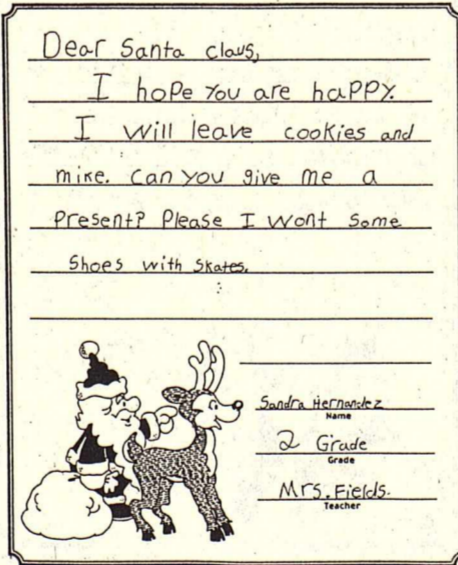 Dear Santa claus,
I hope you are happy.
I will leave cookies and
mike. Can you give me a
Present? Please I wont Some
Shoes with Skates.
Sandra Hernandez
Name
2 Grade
Grade
Mrs. Fields.
Teacher